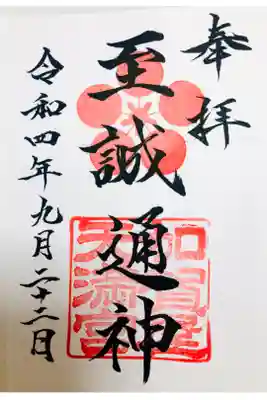 奉拝
至誠通神
加賀屋
天満宮
令和四年九月二十二日